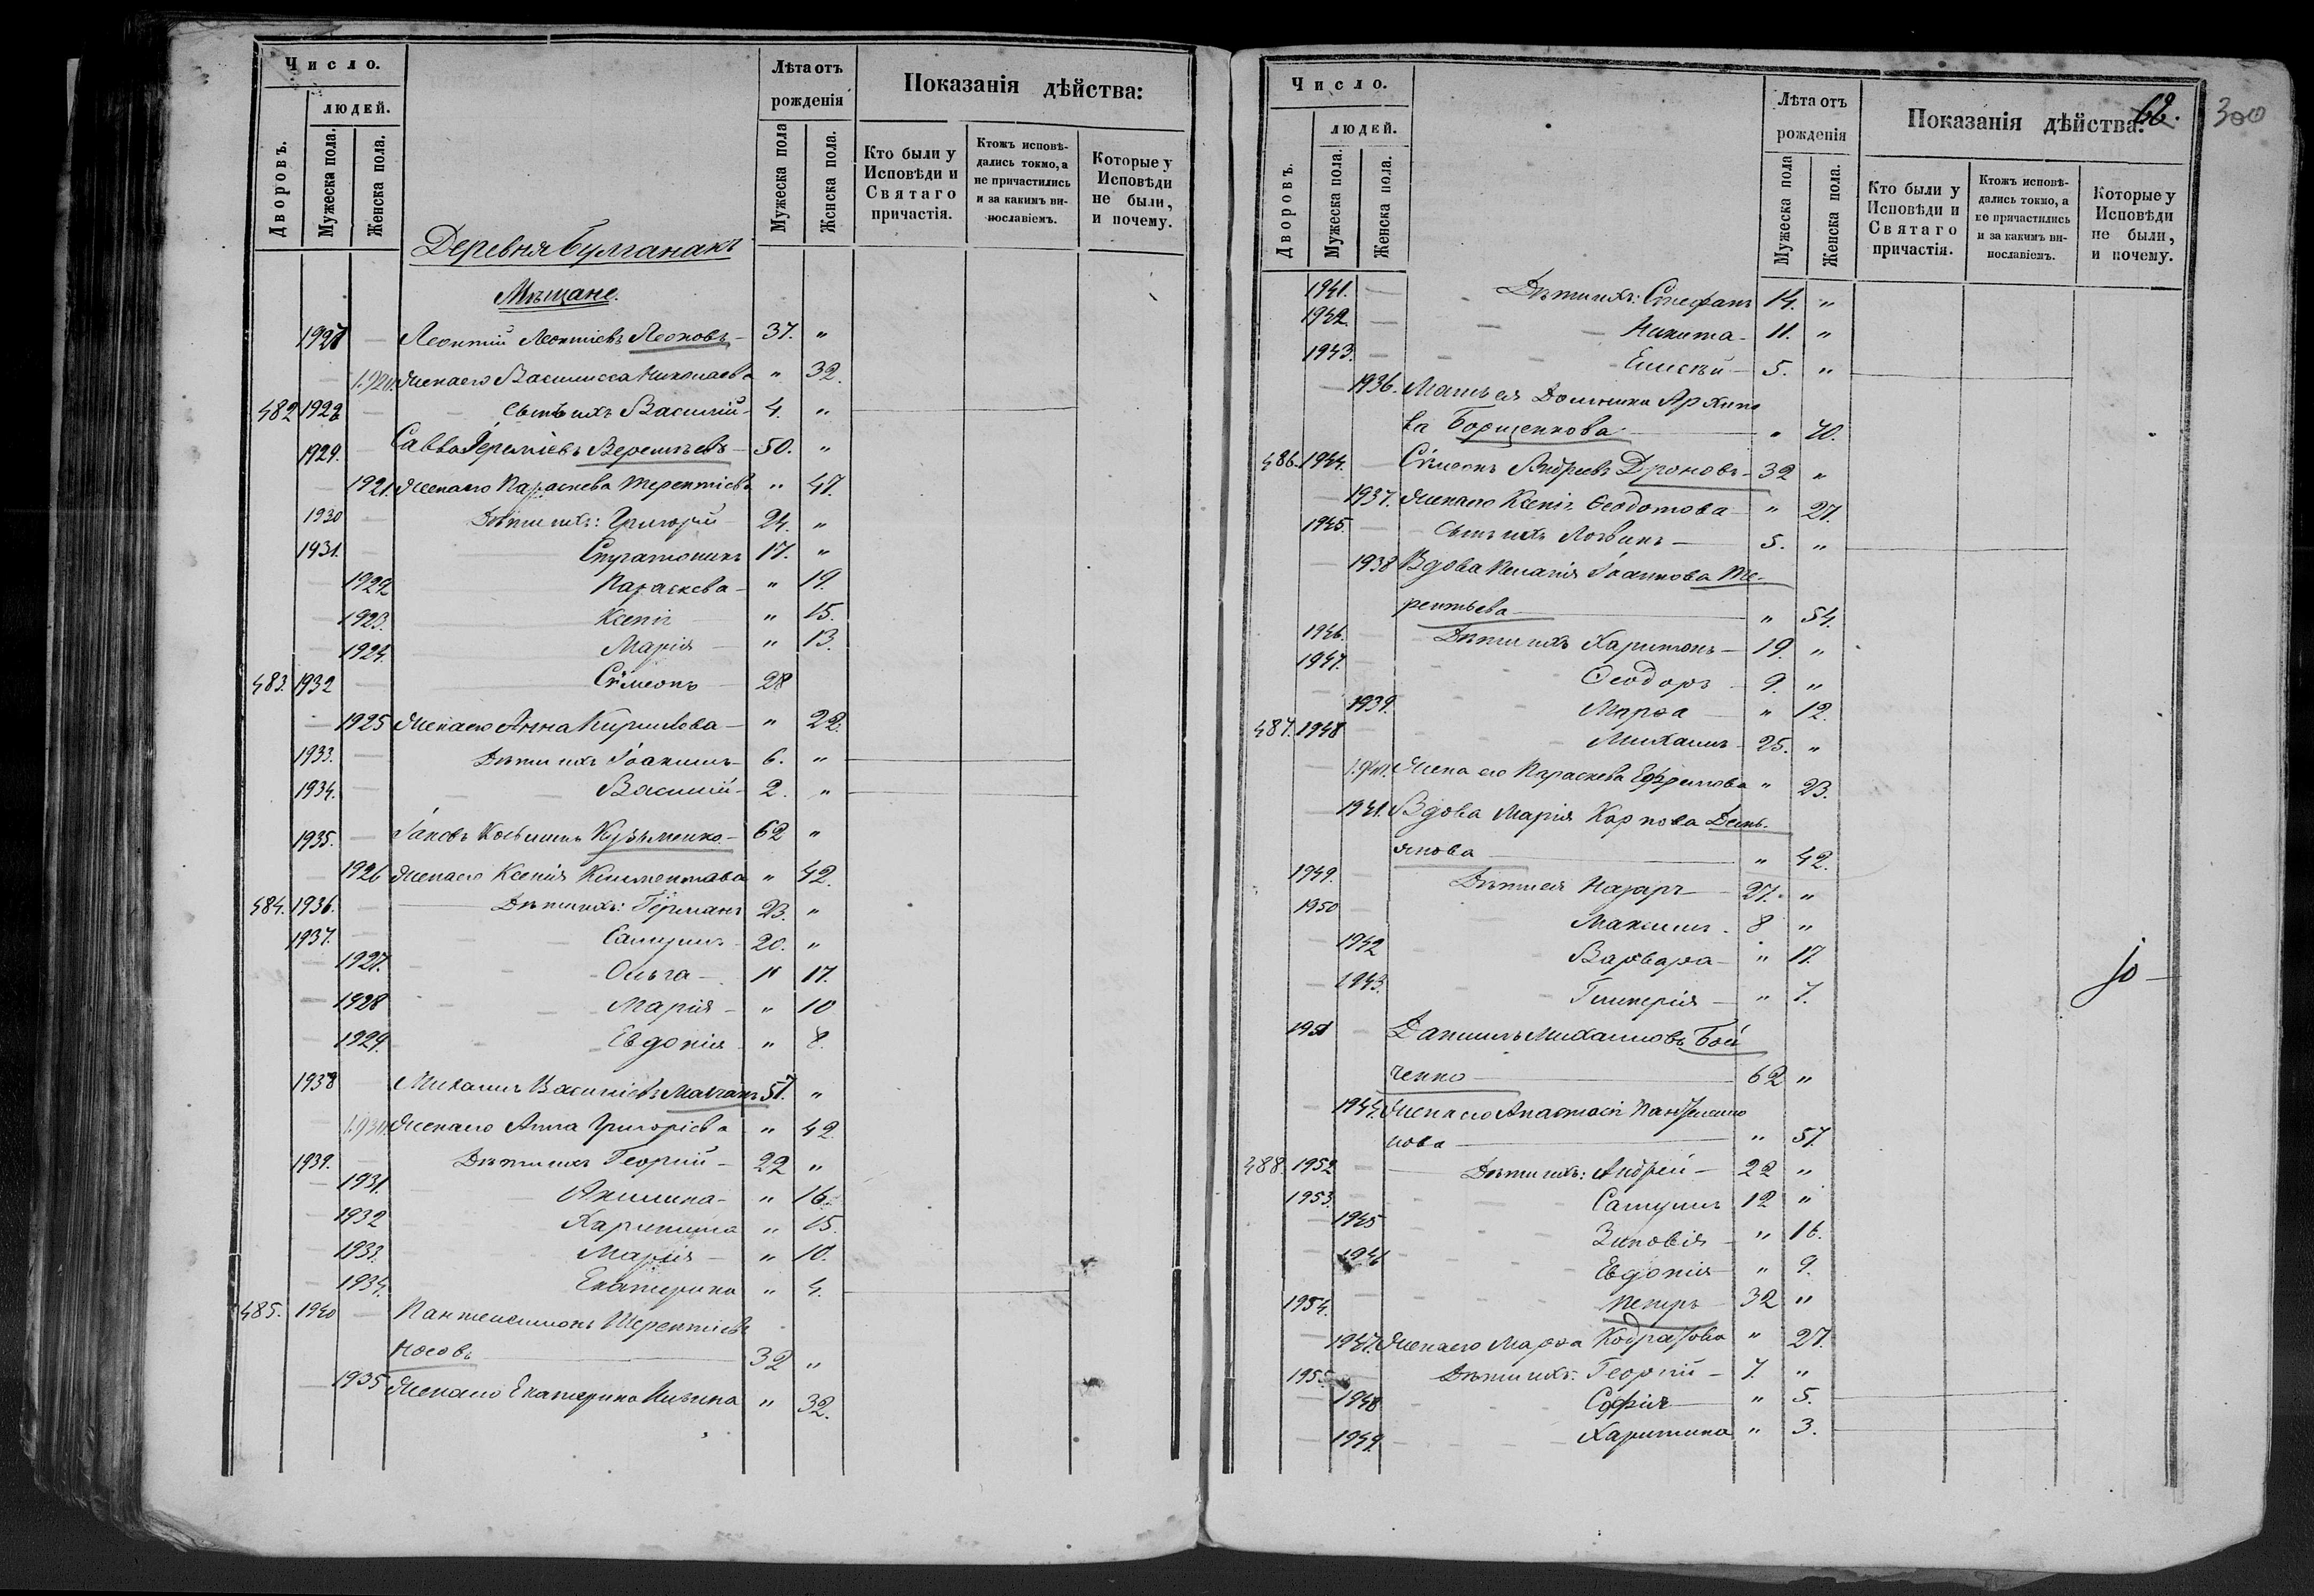 Число.
людей.
Дворовъ.
Мужеска пола.
Женска пола.
Лѣта отъ
рожденія
Мужеска пола
Женска пола.
Показанія дѣйства:
Кто были у
Исповѣди и
Святаго
причастія.
Ктожъ исповѣ-
дались токмо, а
не причастились
и за какимъ ви-
нословіемъ.
Которые у
Исповѣди
не были,
и почему.
Деревня Булганакъ
Мѣщане.
1927 — Леонтій Леонтіевъ Леоновъ — 37. "
— 1920. Жена его Василисса Николаева " 32.
482 1928 — Сынъ ихъ Василій — 4. "
1929. — Савва Іереміевъ Веремѣевъ — 50. "
— 1921. Жена его Параскева Терентіева " 47.
1930 — Дѣти ихъ: Григорій 24. "
1931. — Стратоникъ 17. "
— 1922 Параскева — " 19.
— 1923. Ксенія " 15.
— 1924. Марія — " 13.
483. 1932 — Сѵмеонъ — 28
— 1925 Жена его Анна Кирилова — " 22.
1933. — Дѣти ихъ Іоакимъ — 6. "
1934. — Василій — 2. "
1935. — Іаковъ Косьминъ Кузьменко — 62 "
— 1926 Жена его Ксенія Климентова " 42.
484. 1936. — Дѣти ихъ: Германъ 23. "
1937. — Самуилъ 20. "
— 1927. Ольга — " 17.
— 1928 Марія — " 10
— 1929. Евдокія " 8.
1938 Михаилъ Васильевъ 57. "
— 1930. Жена его Анна Григоріева " 42
1939. — Дѣти ихъ Георгій — 22 "
— 1931. Акилина — " 16.
— 1932 Харитина " 15.
— 1933. Марія — " 10.
— 1934. Екатерина " 4.
485. 1940 — Пантелеимонъ Терентіевъ
Носовъ — 32 "
— 1935 Жена его Екатерина Ильина " 32.
62.
300
Число.
людей.
Дворовъ.
Мужеска пола.
Женска пола.
Лѣта отъ
рожденія
Мужеска пола
Женска пола.
Показанія дѣйства:
Кто были у
Исповѣди и
Святаго
причастія.
Ктожъ исповѣ-
дались токмо, а
не причастились
и за какимъ ви-
нославіемъ.
Которые у
Исповѣди
не были,
и почему.
1941. — Дѣти ихъ: Стефанъ 14. "
1942 — Никита — 11. "
1943. — Елисей — 5. "
— 1936. Мать ея Домника Архипо
ва Борщенкова — " 70.
486. 1944. — Сѵмеонъ Андреевъ Дроновъ — 32 "
— 1937. Жена его Ксенія Ѳеодотова " 27.
1945. — Сынъ ихъ Логвинъ — 5. "
— 1938 Вдова Пелагія Іоаннова Те-
рентьева — " 54.
1946. — Дѣти ихъ Харитонъ — 19. "
1947. — Ѳеодоръ 9. "
— 1939. Марѳа " 12.
487. 1948 — Михаилъ 25. "
— 1940. Жена его Параскева Ефремова " 23.
— 1941. Вдова Марія Карпова Демь-
янова — " 42.
1949. Дѣти ея Назаръ — 27. "
1950 — Максимъ. 8 "
— 1942 Варвара — " 17.
— 1943. Гликерія — " 7.
1951 — Даніилъ Михаиловъ Бой
ченко — 62 "
— 1944. Жена его Анастасія Пантелеимо
нова — " 57.
488. 1952 — Дѣти ихъ: Андрей — 22 "
1953. — Самуилъ 12 "
— 1945 Зиновія " 16.
— 1946 Евдокія " 9.
1954. — Петръ 32 "
— 1947. Жена его Марѳа Кодратова " 27.
1955. Дѣти ихъ: Георгій — 7. "
— 1948 Софія " 5.
— 1949. Харитина " 3.